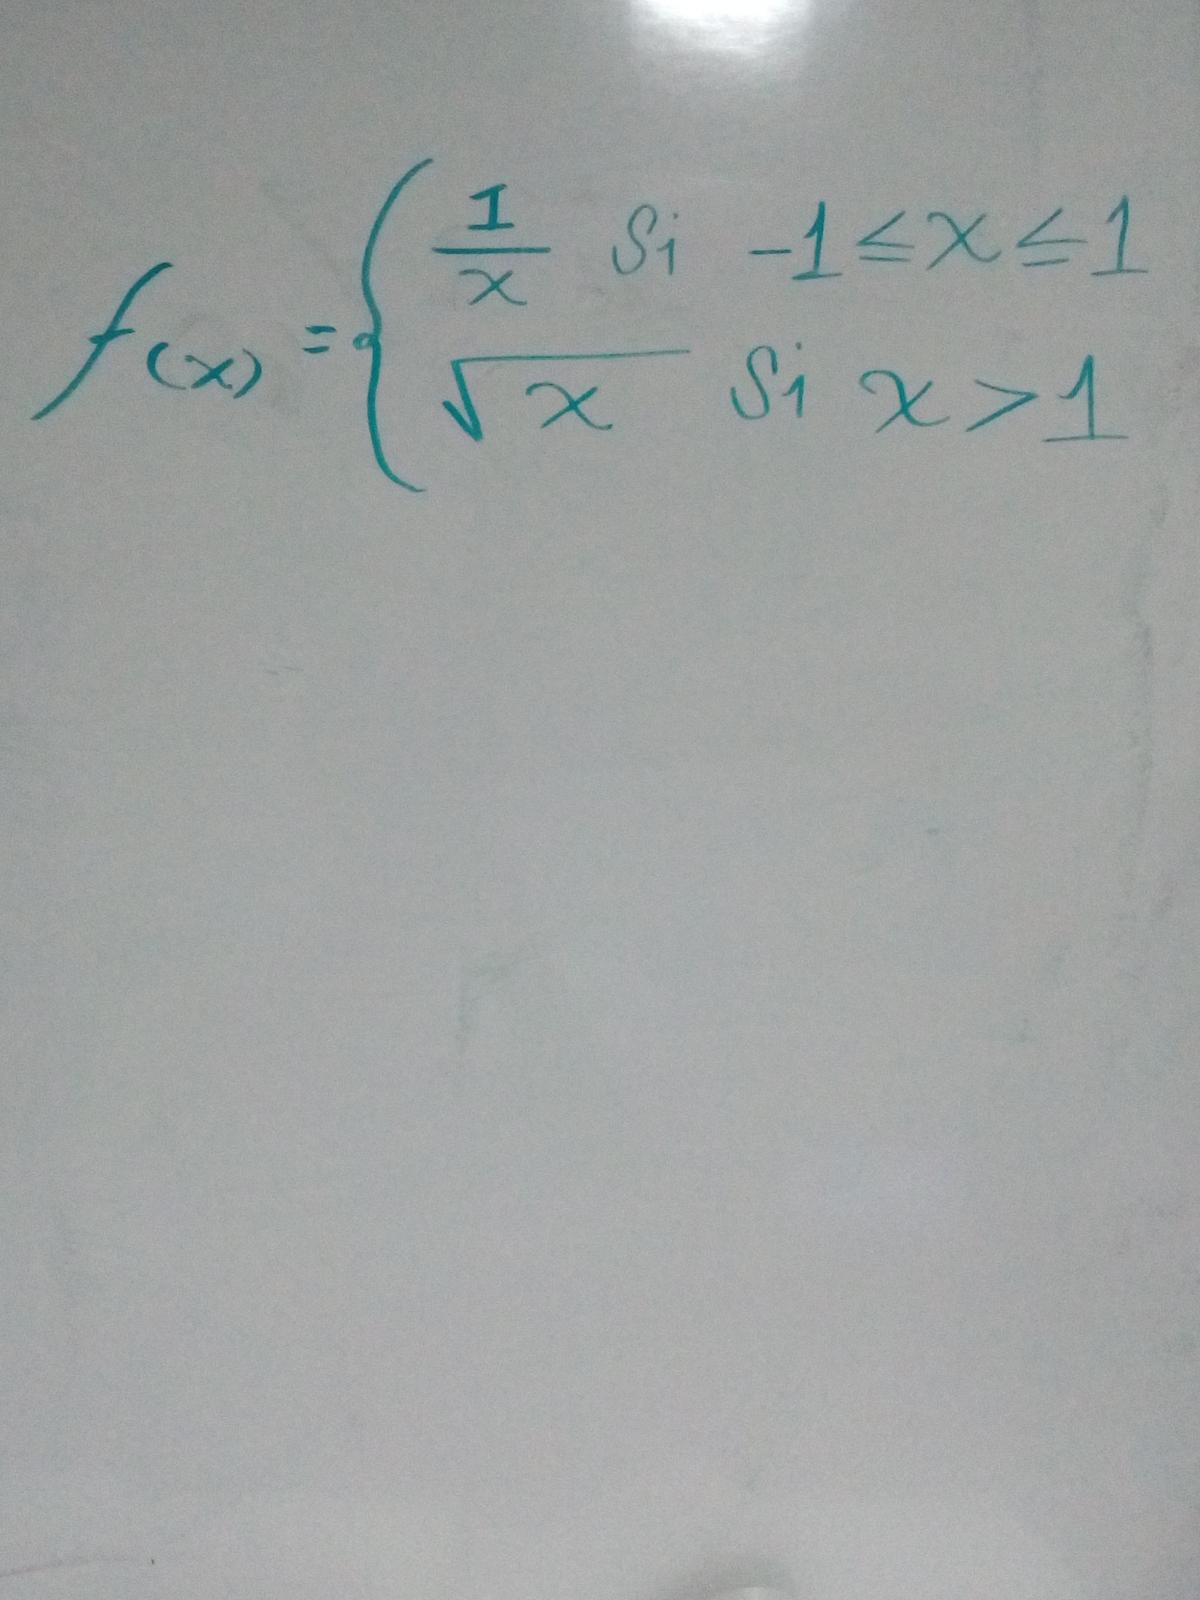 f(x) = { 1/x Si -1 ≤ x ≤ 1
√x Si x > 1